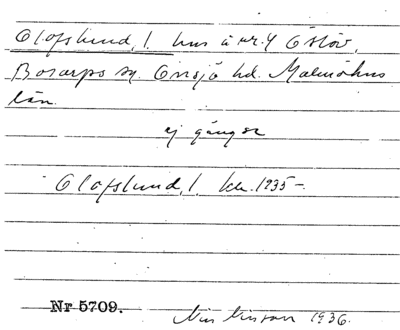 Olofslund, l. hus å nr. 4 Östöv,
Bosarps sn. Onsjö hd. Malmöhus
län.
ej gånger
Olofslund, l. ku. 1935 –
Nr 5709.
Nils Nilsson 1936.